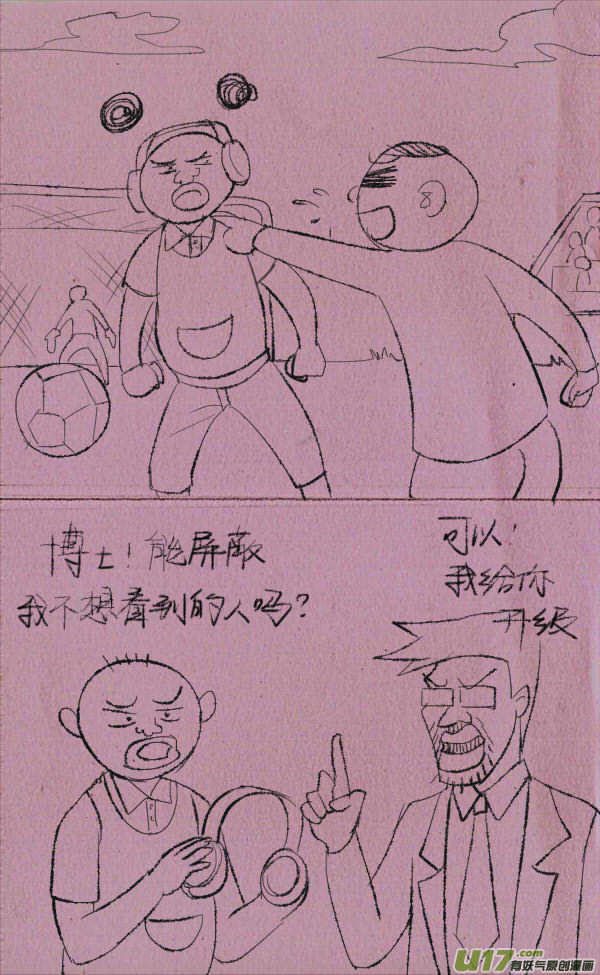 博士！能屏蔽
我不想看到的人吗？
可以！
我给你
升级
U17.com
有妖气原创漫画